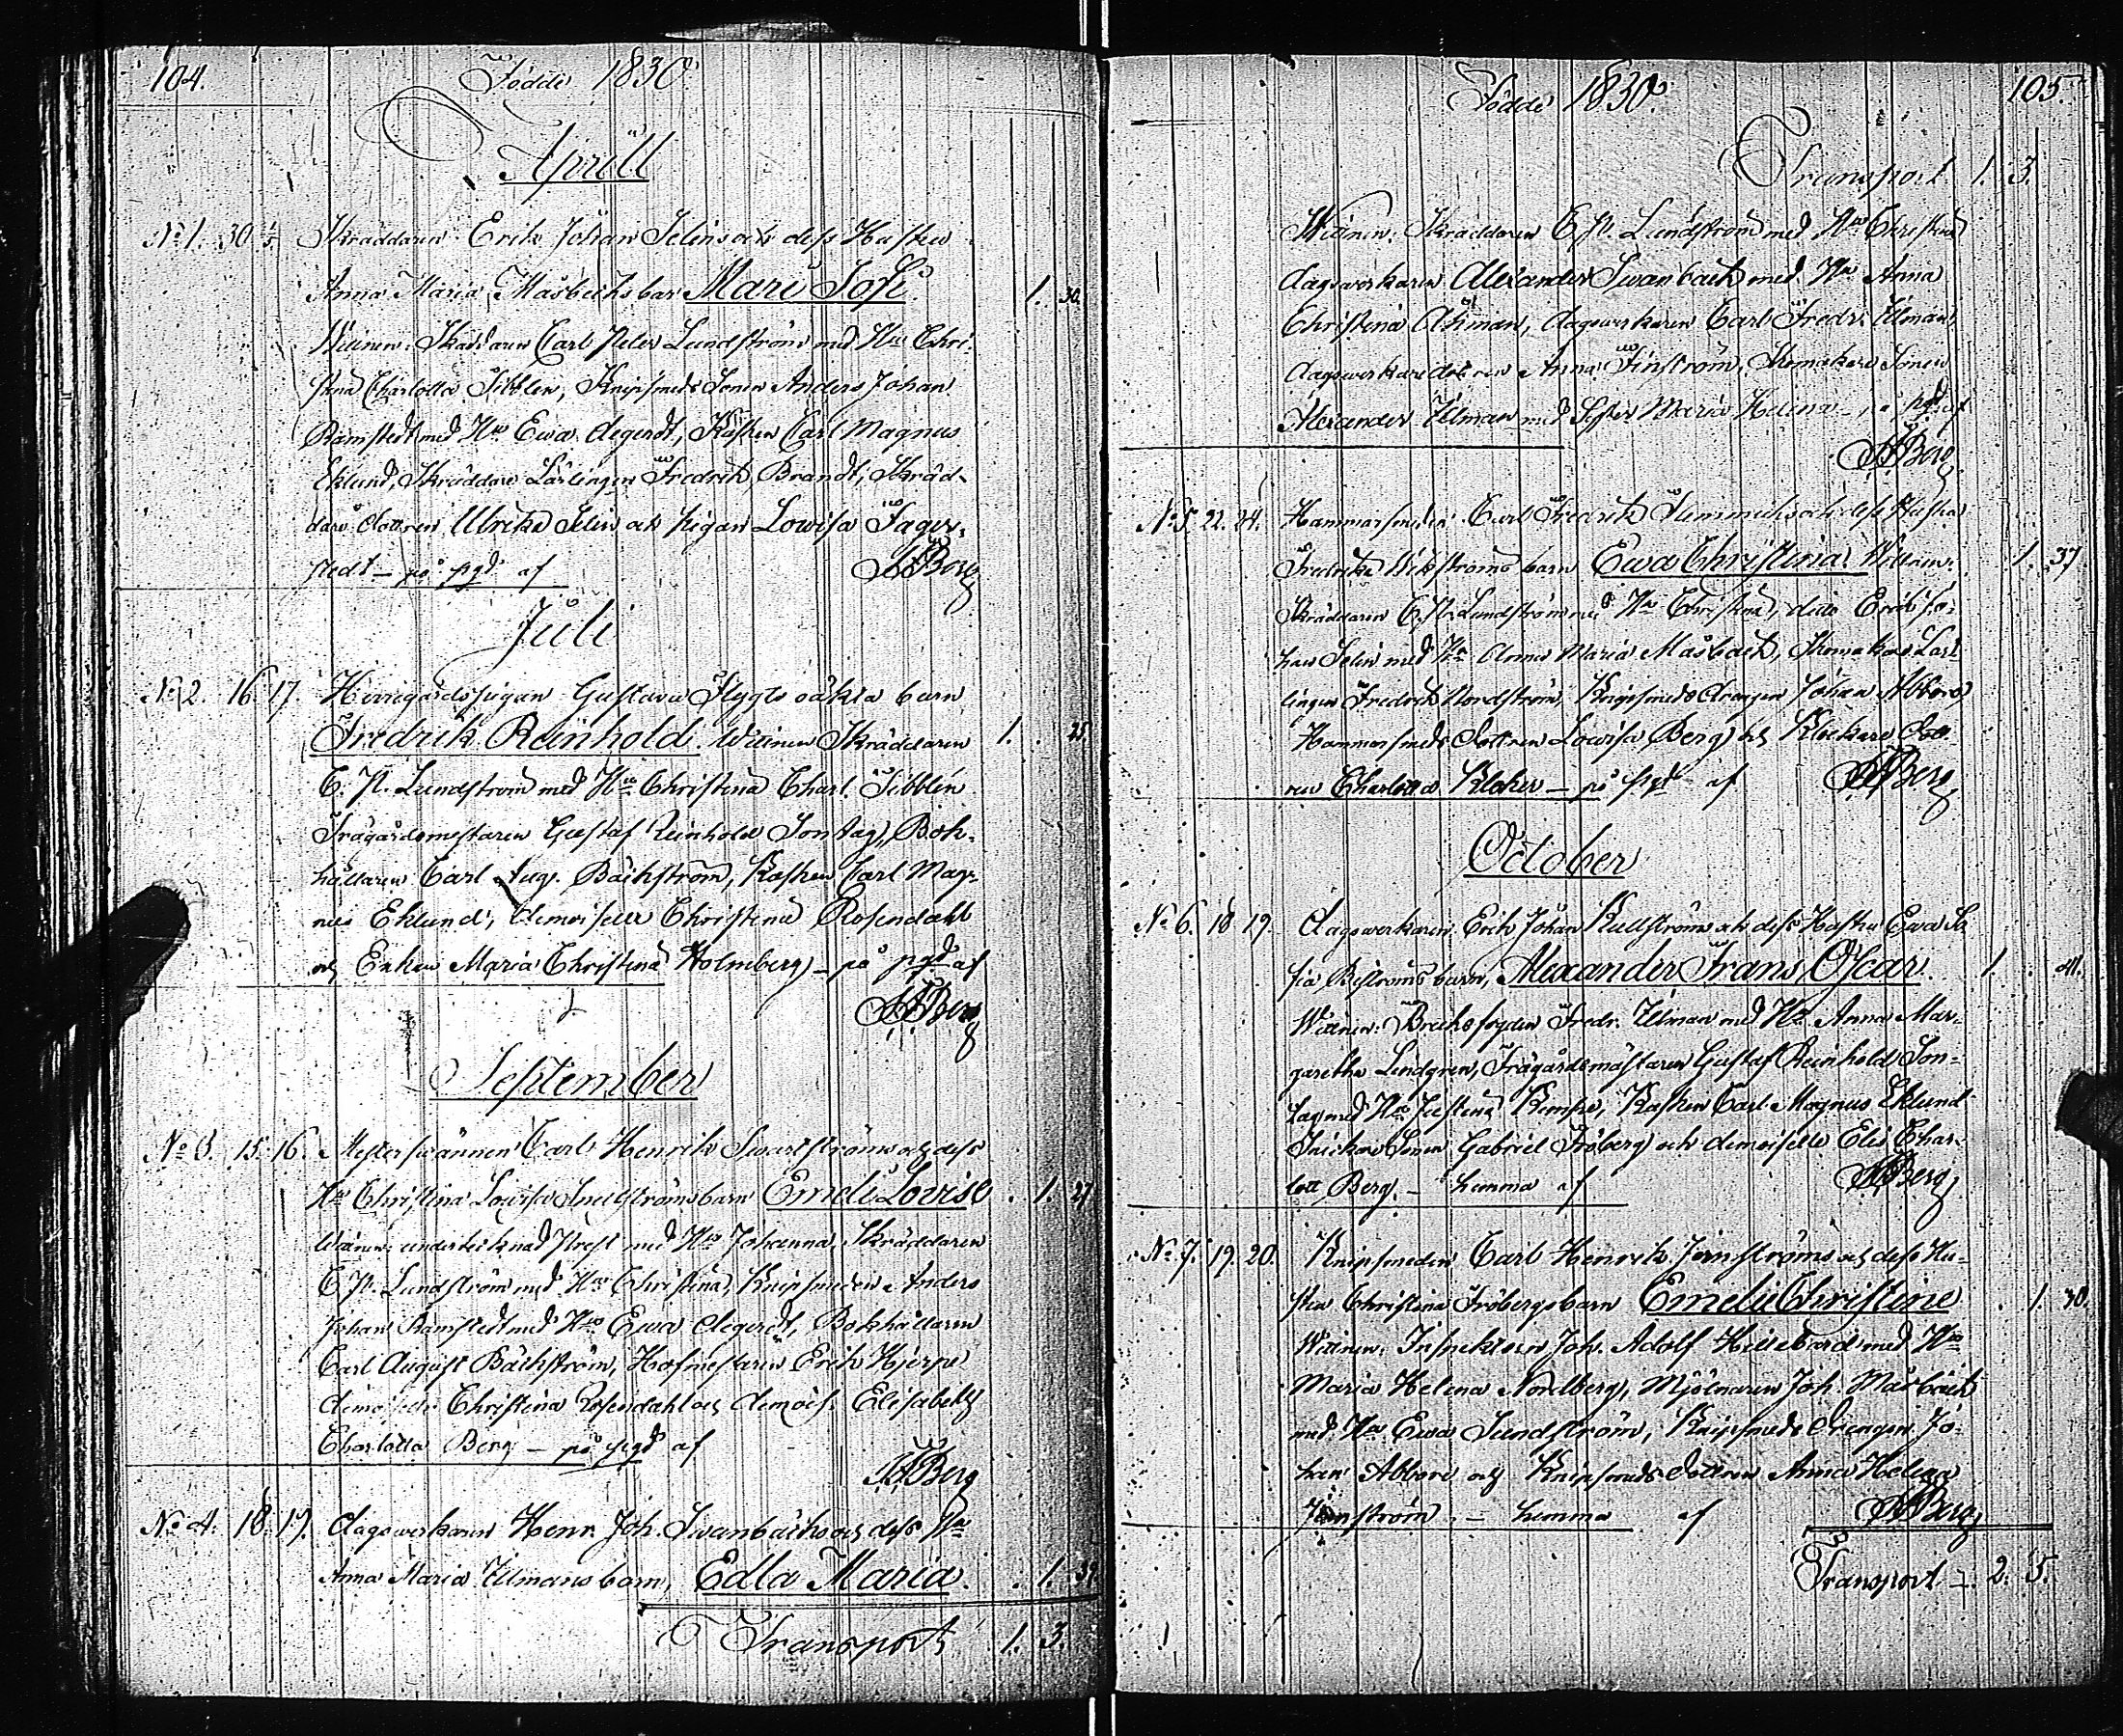 104. Födde 1830.
Aprill
No 1. 30 1/5 Skräddaren Erik Johan Selins och dess Hustru
Anna Maria Måsbecks barn Mari Sofi. 1. 30.
Wittnen: Skräddaren Carl Peter Lundström med Hu Chri-
stina Charlotta Tibblin, Knipsmeds Sonen Anders Johan
Ramstedt med Hu Ewa Aegerdt, Kusken Carl Magnus
Eklund, Skräddare Lärlingen Fredrik Brandt, Skräd-
dare dottren Ulrika Selin och pigan Lowisa Fager-
stedt — på sgd af AABerg
Juli
No 2. 16. 17. Herregårdspigan Gustava Flygts oäkta barn
Fredrik Reinhold. Wittnen Skräddaren 1. 25.
C. P. Lundström med Hu Christina Charl. Tibblin
Trägårdsmestaren Gustaf Reinhold Sontag, Bok-
hållaren Carl Aug. Bäckström, Kusken Carl Mag-
nus Eklund, demoiselle Christina Rosendahl
och Enkan Maria Christina Holmberg — på sgd af
AABerg
September
No 3. 15. 16. Mestersvännen Carl Henrik Swartströms och dess
Hu Christina Lowisa barn Emeli Lovise. 1. 27
Wittnen: undertecknad Prest med Hu Johanna, Skräddaren
C. P. Lundström med Hu Christina, Knipsmeden Anders
Johan Ramstedt med Hu Ewa Aegerdt, Bokhållaren
Carl August Bäckström, Hofmestaren Erik Hjerpe
demoiselle Christina Rosendahl och demois. Elisabeth
Charlotta Berg — på sgd af
AABerg
No 4. 18. 19. dagswerkaren Henr. Joh. Swanbäcks och dess Hu
Anna Maria Ulmans barn, Edla Maria. 1. 39
Transport 1. 3.
Födde 1830. 105.
Transport 1. 3.
Wittnen: Skräddaren C. P. Lundström med Hu Christina
dagswerkaren Alexander Swanbäck med Hu Anna
Christina Åhman, dagswerkaren Carl Fredr. Ulman,
dagswerkaredottren Anna Finström, Skomakare Sonen
Alexander Ulman med Syster Maria Helena — på sgd af
AABerg
No 5. 22. 24. Hammarsmeden Carl Fredrik och dess Hustru
Fredrika Wikströms barn Ewa Christina. Wittnen: 1. 37
Skräddaren C. P. Lundström med Hu Christina, ditto Erik Jo-
han Selin med Hu Anna Maria Måsback, Skomakare Lär-
lingen Fredrik Nordström, Knipsmeds drengen Johan Abbore
Hammarsmeds Dottren Lowisa Berg och Klockare Dott-
ren Charlotta — på sgd af AABerg
October
No 6. 18 19. dagswerkaren Erik Johan Kullströms och dess Hustru Ewa So-
fia Biströms barn, Alexander Frans Oscar. 1. 41.
Wittnen: Bruksfogden Fredr. Ulman med Hu Anna Mar-
garetha Lindgren, Trägårdsmästaren Gustaf Reinhold Son-
tag med Hu Justina Kempe, Kusken Carl Magnus Eklund
Snickare Sonen Gabriel Fröberg och demoiselle Elis. Char-
lott Berg. — hemma af AABerg
No 7. 19. 20. Knipsmeden Carl Henrik Jernströms och dess Hu-
stru Christina Fröbergs barn Emeli Christine. 1. 30.
Wittnen: Inspektoren Joh. Adolf Hillebard med Hu
Maria Helena Nordberg, Mjölnaren Joh. Måsbäck
med Hu Ewa Sundström, Knipsmeds Drengen Jo-
han Abbore och Knipsmeds Dottren Anna Helena
Jernström. — hemma af AABerg
Transport — 2. 5.